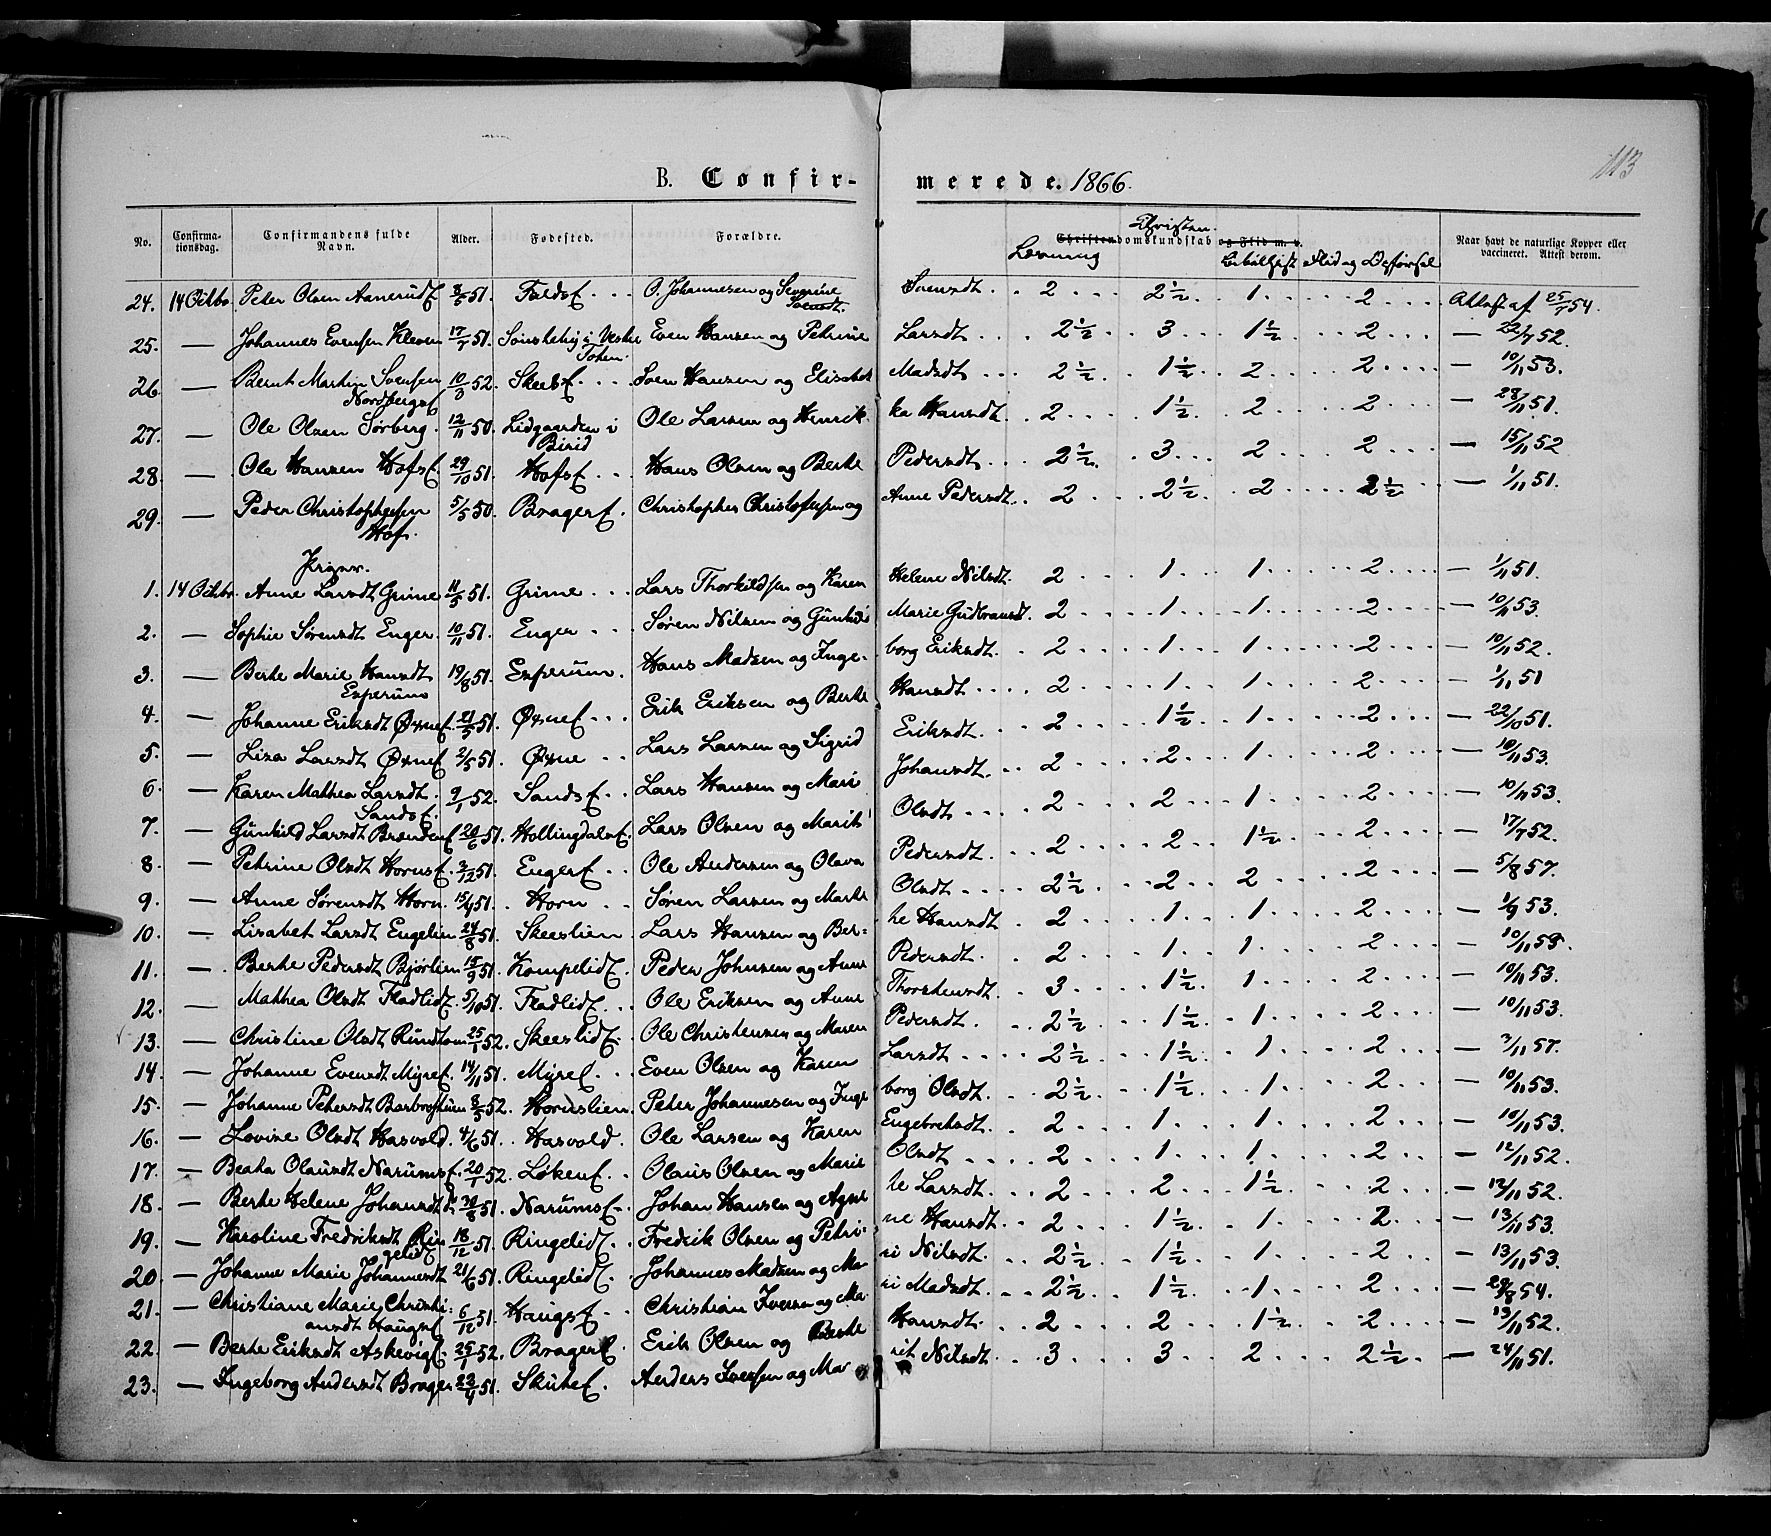 113
B. Confir- merede. 1866.
No. Confirma-tionsdag. Confirmandens fulde Navn. Alder. Fødested. Forældre. Læsning Christendomskundskab og Flid m. v. Christen. Flid og Naar havt de naturlige Kopper eller vaccineret. Attest derom.
24. 14 Octbr. Peter Olsen Aanerud 8/5 51. O. Johannesen og Severine Svensdt. 2 2½ 1 2 Attest af 25/7 54.
25. — Johannes Evensen Kleven 17/7 51. Vestre Toten. Even Hansen og Petrine Larsdt. 2½ 3 1½ 2 — 22/7 52.
26. — Bernt Martin Svensen Nordbergsf 52. Sven Hansen og Elisabet Madsdt. 2½ 1½ 2 2 — 10/11 53.
27. — Ole Olsen Sørberg. 12/11 50. i Birid Ole Larsen og Henrik-ka Hansdt. 2 1½ 2 2 — 28/11 51.
28. — Ole Hansen Hofsf 29/10 51. Hofsf Hans Olsen og Berte Pedersdt. 2½ 3 2 2 — 15/11 52
29. — Peder Christophersen Hof. 5/5 50. Bragerf. Christopher Christofersen og Anne Pedersdt. 2 2½ 2 2½ — 1/11 51.
Piger.
1. 14 Octbr. Anne Larsdt Grime 11/5 51. Grime Lars Thorkildsen og Karen Helene Nilsdt. 2 1 1 2 — 1/11 51.
2. — Sophie Sørensdt Enger. 10/11 51. Enger Søren Nilsen og Marie Gudbransdt. 2 1 1 2 — 10/11 53.
3. — Berte Marie Hansdt Enperum 19/8 51. Enperum. Hans Madsen og Inge-borg Eriksdt. 2 1 1 2 — 10/11 52.
4. — Johanne Eriksdt Øxnef. 21/5 51. Øxnef Erik Eriksen og Berte Hansdt 2 1 1 2 — 1/11 51
5. — Liza Larsdt Øxnef 2/5 51. Øxne Lars Larsen og Sigrid Eriksdt. 2 1½ 1 2 — 22/10 51.
6. — Karen Mathea Larsdt. Sandsf. 9/1 52. Sandsf. Lars Hansen og Mari Johansdt. 2 2 1 2 — 10/11 53.
7. — Gunhild Larsdt Brændenf 20/6 51. Hollingdalsf. Lars Olsen og Marit Olsdt 2 2 1 2 — 10/11 53.
8. — Petrine Olsdt Hornsf. 3/12 51. Engerf. Ole Andersen og Olava Pedersdt. 2 2 1½ 2 — 17/7 52.
9. — Anne Sørensdt Horn. 15/4 51. Horn Søren Larsen og Marte Olsdt 2½ 2 2 2 — 5/8 57.
10. — Lisabet Larsdt Engelien 24/8 51. Skeeslien Lars Hansen og Ber-te Hansdt. 2 1 1 2 — 1/9 53.
11. — Berte Pedersdt Bjørlien 15/9 51. Kompelidf. Peder Johnsen og Anne Pedersdt. 2 1 1 2 — 10/11 55.
12. — Mathea Olsdt Fladlidf. 5/10 51. Fladlidf. Ole Eriksen og Anne Thorstensdt. 3 1½ 1 2 — 10/11 53.
13. — Christine Olsdt Rundtom 25/1 52. Skeeslidf. Ole Christensen og Maren Pedersdt. 2½ 1½ 1 2 — 10/11 53.
14. — Johanne Evensdt Myref. 14/11 51. Myref. Even Olsen og Karen Larsdt 2½ 1½ 1 2 — 3/11 57.
15. — Johanne Petersdt Barbrostuen 8/5 52. Hornslien. Peter Johannesen og Inge-borg Olsdt. 2½ 1½ 1 2 — 10/11 53.
16. — Lovise Olsdt Hasvold. 4/6 51. Hasvold. Ole Larsen og Karen Engebretsdt. 2 1 1 2 — 10/11 53.
17. — Beata Olausdt Narumsf. 20/1 52. Løkenf. Olaus Olsen og Marie Olsdt 2 1 1 2 — 12/11 52.
18. — Berte Helene Johansdt 30/8 51. Narumsf. Johan Hansen og Agne-te Larsdt. 2 2 1½ 2 — 12/11 52.
19. — Karoline Fredriksdt Ringelidf 18/12 51. Ringelidf. Fredrik Olsen og Petri-ne Hansdt. 2 1½ 1 2 — 13/11 53.
20. — Johanne Marie Johannesdt 21/6 51. Ringelidf. Johannes Madsen og Ma-ri Nilsdt. 2½ 1½ 1 2 — 13/11 53.
21. — Christiane Marie Christi-ansdt Haugsf 6/12 51. Haugsf. Christian Iversen og Ma-ri Madsdt. 2½ 1½ 1 2 — 29/8 54.
22. — Berte Eriksdt Askevigf. 25/1 52. Bragerf. Erik Olsen og Berte Hansdt. 2 2 1½ 2 — 13/11 52.
23. — Ingeborg Andersdt Brager 23/4 51. Skutef. Anders Iversen og Ma-rit Nilsdt. 3 3 2 2½ — 24/11 51.